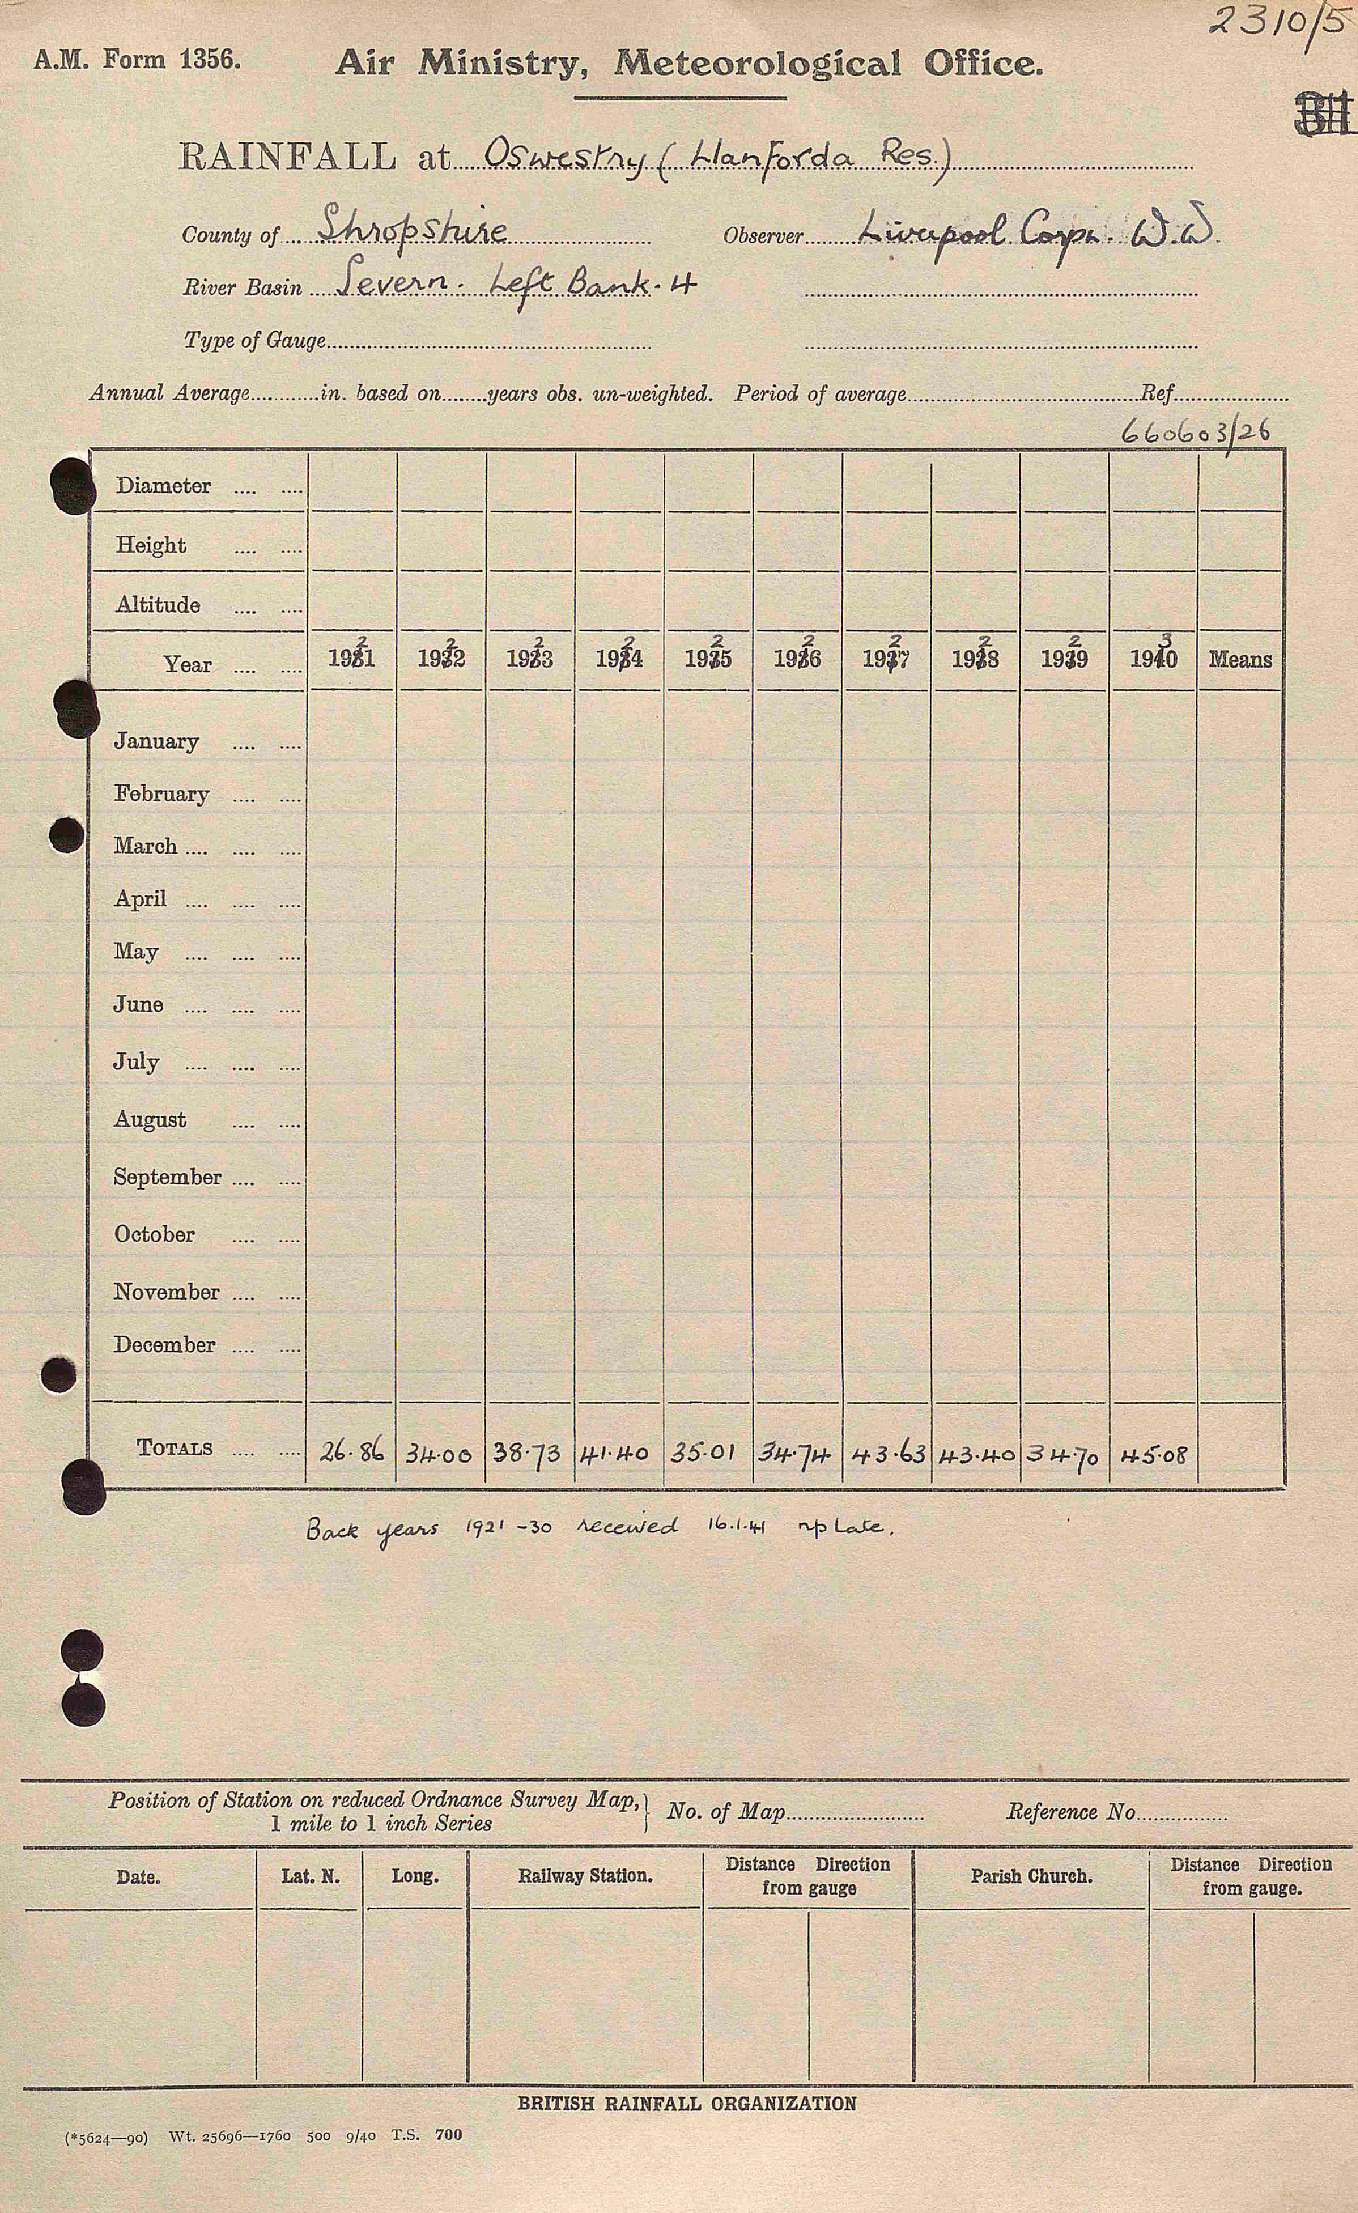 2310/5
A.M. Form 1356.
Air Ministry, Meteorological Office.
RAINFALL at Oswestry (Llanforda Res.)
County of Shropshire Observer Liverpool Corpn. W.W.
River Basin Severn. Left Bank. 4
Type of Gauge
Annual Average in. based on years obs. un-weighted. Period of average Ref.
660603/26
Diameter
Height
Altitude
Year 1921 1922 1923 1924 1925 1926 1927 1928 1929 1930 Means
January
February
March
April
May
June
July
August
September
October
November
December
TOTALS 26.86 34.00 38.73 41.40 35.01 34.74 43.63 43.40 34.70 45.08
Back years 1921-30 received 16.1.41 late.
Position of Station on reduced Ordnance Survey Map, 1 mile to 1 inch Series No. of Map Reference No.
Date. Lat. N. Long. Railway Station. Distance Direction from gauge Parish Church. Distance Direction from gauge.
BRITISH RAINFALL ORGANIZATION
(*5624—90) Wt. 25696—1760 500 9/40 T.S. 700